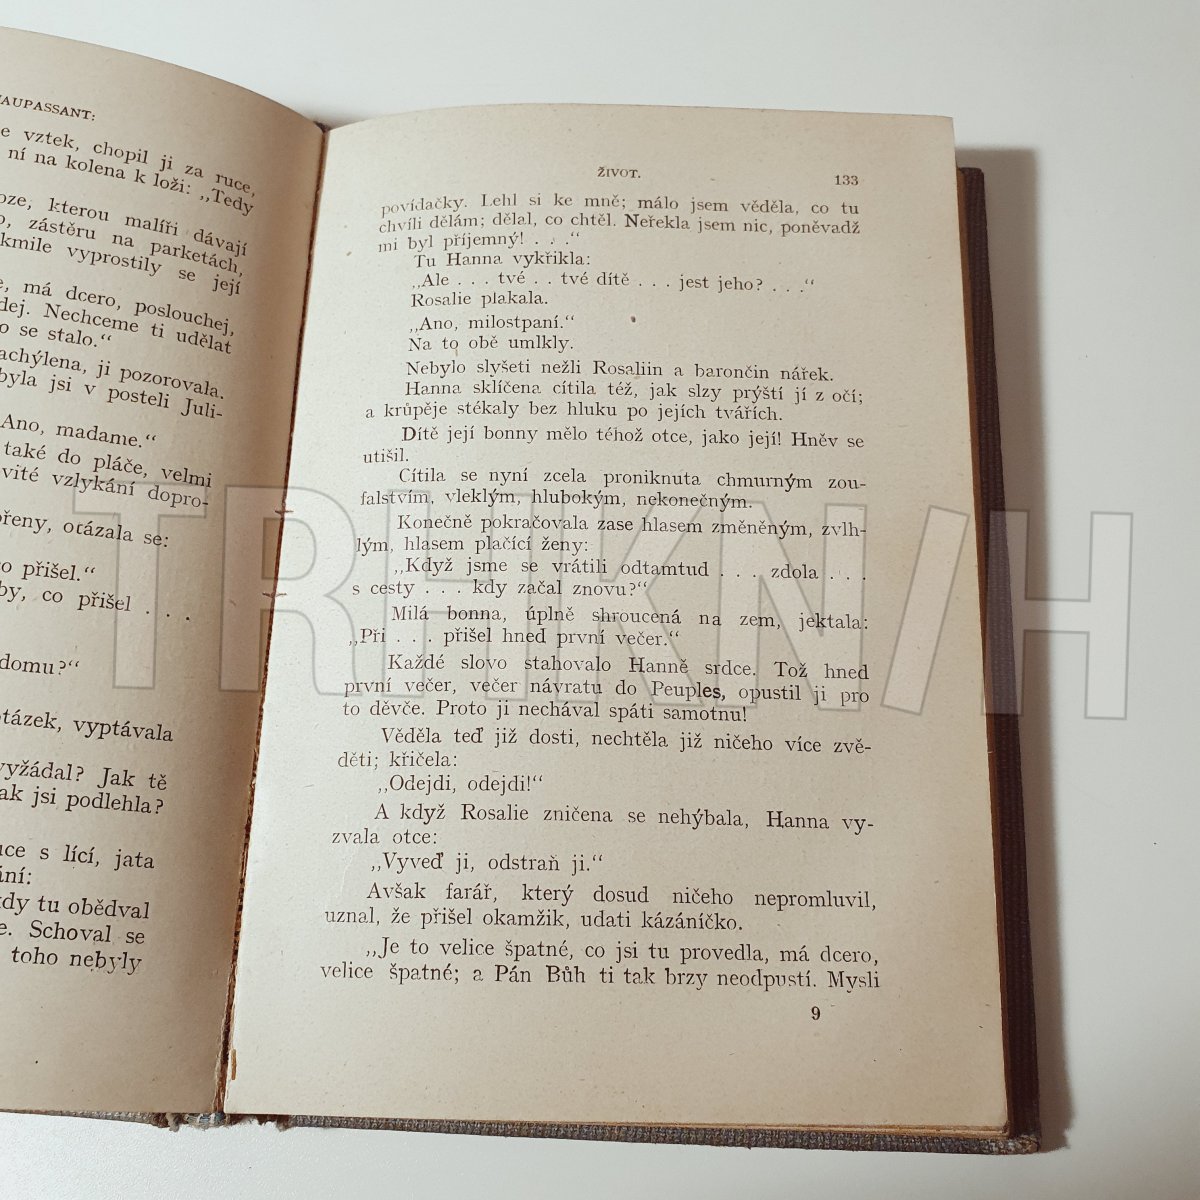 MAUPASSANT:
e vztek, chopil ji za ruce,
ní na kolena k loži: ,,Tedy
oze, kterou malíři dávají
o, zástěru na parketách,
kmile vyprostily se její
e, má dcero, poslouchej,
dej. Nechceme ti udělat
o se stalo.“
achýlena, ji pozorovala.
byla jsi v posteli Juli-
Ano, madame.“
také do pláče, velmi
ovité vzlykání dopro-
ořeny, otázala se:
o přišel.“
by, co přišel . . .
domu?“
otázek, vyptávala
vyžádal? Jak tě
ak jsi podlehla?
uce s lící, jata
ání:
kdy tu obědval
e. Schoval se
toho nebyly
ŽIVOT.
133
povídačky. Lehl si ke mně; málo jsem věděla, co tu
chvíli dělám; dělal, co chtěl. Neřekla jsem nic, poněvadž
mi byl příjemný! . . .“
Tu Hanna vykřikla:
,,Ale . . . tvé . . tvé dítě . . . jest jeho? . . .“
Rosalie plakala.
,,Ano, milostpaní.“
Na to obě umlkly.
Nebylo slyšeti nežli Rosaliin a barončin nářek.
Hanna sklíčena cítila též, jak slzy prýští jí z očí;
a krůpěje stékaly bez hluku po jejích tvářích.
Dítě její bonny mělo téhož otce, jako její! Hněv se
utišil.
Cítila se nyní zcela proniknuta chmurným zou-
falstvím, vleklým, hlubokým, nekonečným.
Konečně pokračovala zase hlasem změněným, zvlh-
lým, hlasem plačící ženy:
,,Když jsme se vrátili odtamtud . . . zdola . . .
s cesty . . . kdy začal znovu?“
Milá bonna, úplně shroucená na zem, jektala:
,,Při . . . přišel hned první večer.“
Každé slovo stahovalo Hanně srdce. Tož hned
první večer, večer návratu do Peuples, opustil ji pro
to děvče. Proto ji nechával spáti samotnu!
Věděla teď již dosti, nechtěla již ničeho více zvě-
děti; křičela:
,,Odejdi, odejdi!“
A když Rosalie zničena se nehýbala, Hanna vy-
zvala otce:
,,Vyveď ji, odstraň ji.“
Avšak farář, který dosud ničeho nepromluvil,
uznal, že přišel okamžik, udati kázáníčko.
,,Je to velice špatné, co jsi tu provedla, má dcero,
velice špatné; a Pán Bůh ti tak brzy neodpustí. Mysli
9
TRHKN/H